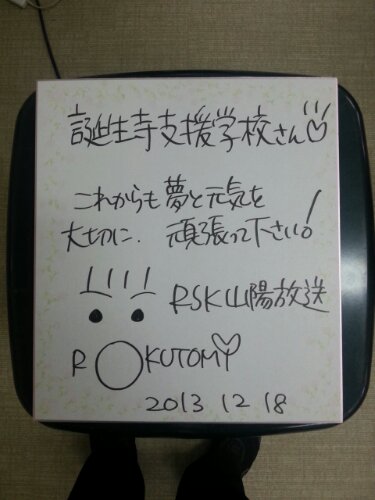 誕生寺支援学校さん♡
これからも夢と元気を
大切に. 頑張って下さい!
RSK山陽放送
ROKUTOMI♡
2013 12 18